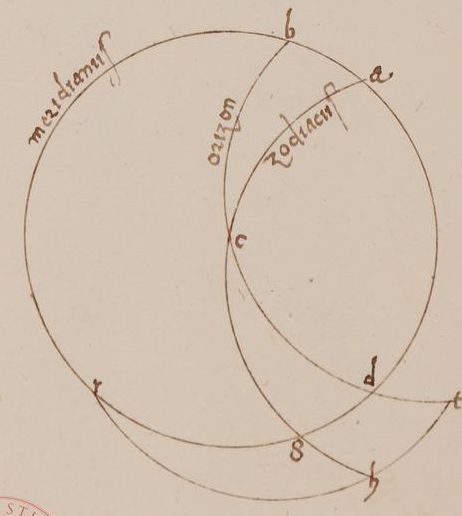 b
a
meridianuſ
orizon
zodiacuſ
c
d
t
r
g
h
ST